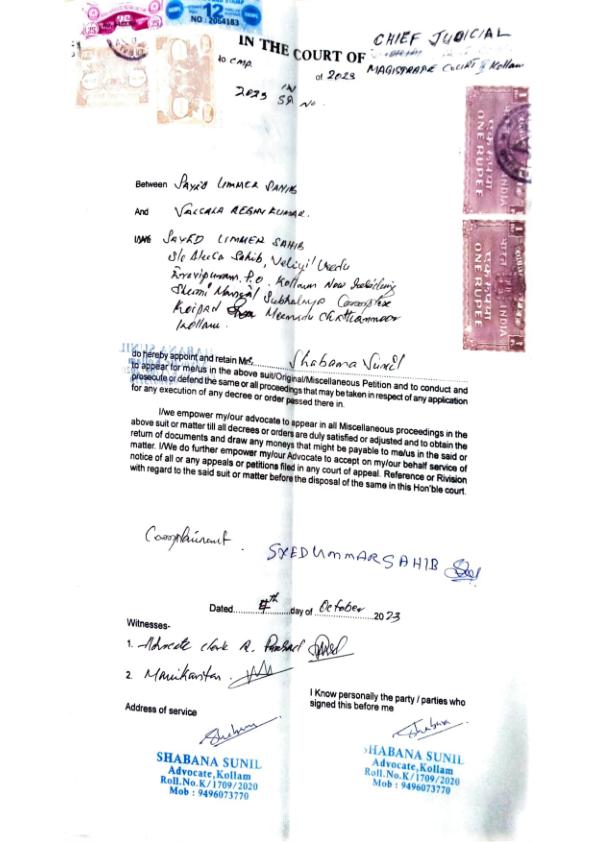 12
NO : 2064183
25
IN THE COURT OF CHIEF JUDICIAL
MAGISTRATE COURT Kollam
to cmp of 2023
IN
2023 SR No.
ONE RUPEE
INDIA
ONE RUPEE
INDIA
Between SAYED UMMER SAHIB
And VALSALA REGHUKUMAR.
I/WE SAYED UMMER SAHIB
S/o Sahib, Veliyil Veedu
Eravipuram. P.O. Kollam Now Residing
Mangal Complex
Meenadu Chathannoor
Kollam.
SHABANA SUNIL
do hereby appoint and retain Mrs. Shabana Sunil
to appear for me/us in the above suit/Original/Miscellaneous Petition and to conduct and
prosecute or defend the same or all proceedings that may be taken in respect of any application
for any execution of any decree or order passed there in.
I/we empower my/our advocate to appear in all Miscellaneous proceedings in the
above suit or matter till all decrees or orders are duly satisfied or adjusted and to obtain the
return of documents and draw any moneys that might be payable to me/us in the said or
matter. I/We do further empower my/our Advocate to accept on my/our behalf service of
notice of all or any appeals or petitions filed in any court of appeal. Reference or Rivision
with regard to the said suit or matter before the disposal of the same in this Hon'ble court.
Complainant
SYED UMMAR SAHIB
Dated 4th day of October 2023
Witnesses-
1. Advocate clerk R.
2. Manikantan
I Know personally the party / parties who
signed this before me
Address of service
Shabana
Shabana
SHABANA SUNIL
Advocate,Kollam
Roll.No.K/1709/2020
Mob : 9496073770
SHABANA SUNIL
Advocate,Kollam
Roll.No.K/1709/2020
Mob : 9496073770